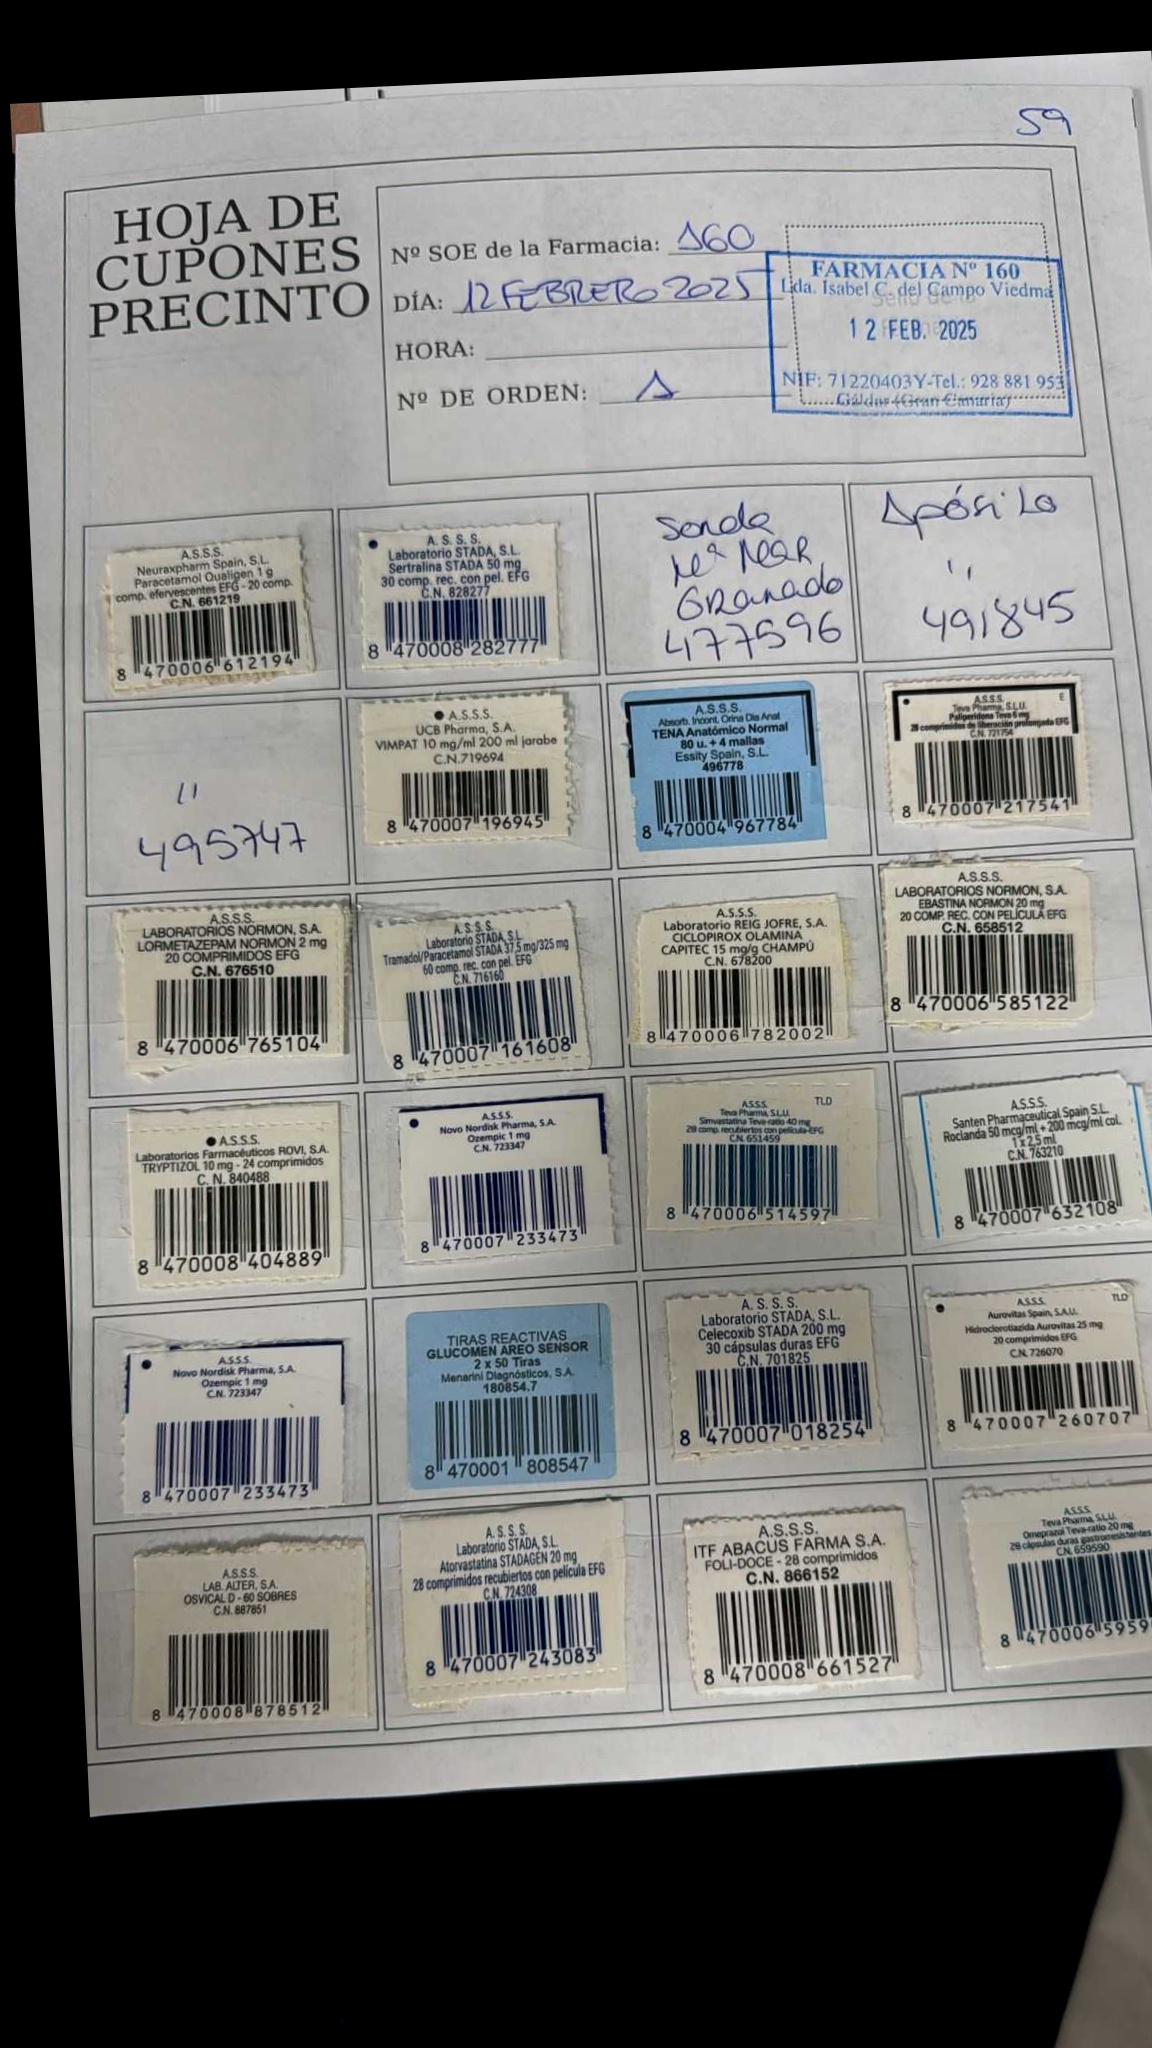 59
HOJA DE
CUPONES
PRECINTO
Nº SOE de la Farmacia: 160
DÍA: 12 FEBRERO 2025
HORA:
Nº DE ORDEN: 1
FARMACIA Nº 160
Lda. Isabel C. del Campo Viedma
12 FEB. 2025
NIF: 71220403Y-Tel.: 928 881 953
Gáldar (Gran Canaria)
A.S.S.S.
Neuraxpharm Spain, S.L.
Paracetamol Qualigen 1 g
comp. efervescentes EFG - 20 comp.
C.N. 661219
8 470006 612194
A. S. S. S.
Laboratorio STADA, S.L.
Sertralina STADA 50 mg
30 comp. rec. con pel. EFG
C.N. 828277
8 470008 282777
Sonda
Mª Mar
Granado
477596
Apósito
''
491845
''
495747
A.S.S.S.
UCB Pharma, S.A.
VIMPAT 10 mg/ml 200 ml jarabe
C.N.719694
8 470007 196945
A.S.S.S.
Absorb. Incont. Orina Día Anat
TENA Anatómico Normal
80 u. + 4 mallas
Essity Spain, S.L.
496778
8 470004 967784
E
A.S.S.S.
Teva Pharma, S.L.U.
Paliperidona Teva 6 mg
28 comprimidos de liberación prolongada EFG
C.N. 721754
8 470007 217541
A.S.S.S.
LABORATORIOS NORMON, S.A.
LORMETAZEPAM NORMON 2 mg
20 COMPRIMIDOS EFG
C.N. 676510
8 470006 765104
A. S. S. S.
Laboratorio STADA, S.L.
Tramadol/Paracetamol STADA 37,5 mg/325 mg
60 comp. rec. con pel. EFG
C.N. 716160
8 470007 161608
A.S.S.S.
Laboratorio REIG JOFRE, S.A.
CICLOPIROX OLAMINA
CAPITEC 15 mg/g CHAMPÚ
C.N. 678200
8 470006 782002
A.S.S.S.
LABORATORIOS NORMON, S.A.
EBASTINA NORMON 20 mg
20 COMP. REC. CON PELÍCULA EFG
C.N. 658512
8 470006 585122
A.S.S.S.
Laboratorios Farmacéuticos ROVI, S.A.
TRYPTIZOL 10 mg - 24 comprimidos
C. N. 840488
8 470008 404889
A.S.S.S.
Novo Nordisk Pharma, S.A.
Ozempic 1 mg
C.N. 723347
8 470007 233473
TLD
A.S.S.S.
Teva Pharma, S.L.U.
Simvastatina Teva-ratio 40 mg
28 comp. recubiertos con película-EFG
C.N. 651459
8 470006 514597
A.S.S.S.
Santen Pharmaceutical Spain S.L.
Roclanda 50 mcg/ml + 200 mcg/ml col.
1 x 2,5 ml
C.N. 763210
8 470007 632108
A.S.S.S.
Novo Nordisk Pharma, S.A.
Ozempic 1 mg
C.N. 723347
8 470007 233473
TIRAS REACTIVAS
GLUCOMEN AREO SENSOR
2 x 50 Tiras
Menarini Diagnósticos, S.A.
180854.7
8 470001 808547
A. S. S. S.
Laboratorio STADA, S.L.
Celecoxib STADA 200 mg
30 cápsulas duras EFG
C.N. 701825
8 470007 018254
TLD
A.S.S.S.
Aurovitas Spain, S.A.U.
Hidroclorotiazida Aurovitas 25 mg
20 comprimidos EFG
C.N. 726070
8 470007 260707
A.S.S.S.
LAB. ALTER, S.A.
OSVICAL D - 60 SOBRES
C.N. 887851
8 470008 878512
A. S. S. S.
Laboratorio STADA, S.L.
Atorvastatina STADAGEN 20 mg
28 comprimidos recubiertos con película EFG
C.N. 724308
8 470007 243083
A.S.S.S.
ITF ABACUS FARMA S.A.
FOLI-DOCE - 28 comprimidos
C.N. 866152
8 470008 661527
A.S.S.S.
Teva Pharma, S.L.U.
Omeprazol Teva-ratio 20 mg
28 cápsulas duras gastrorresistentes
C.N. 659590
8 470006 5959